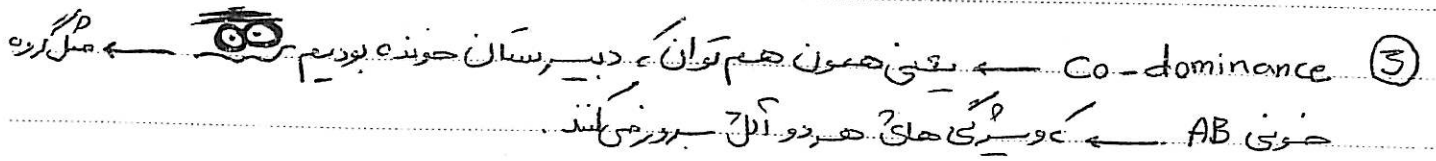 ③ Co-dominance ← یعنی همون هم توان که دبیرستان خونده بودیم ← مثل گروه
خونی AB ← که ویژگی های هر دو آلل بروز می کنند.